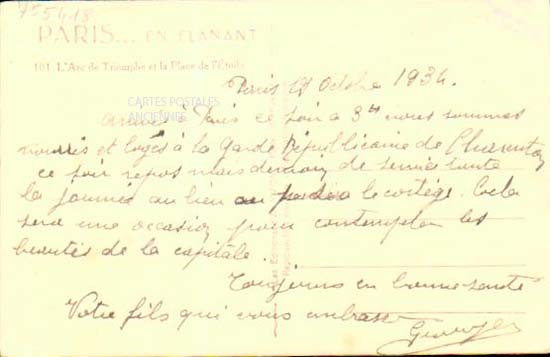 755418
PARIS... EN FLANANT
101 L'Arc de Triomphe et la Place de l'Étoile
Paris 17 Octobre 1934.
CARTES POSTALES
ANCIENNES
Arrivés à Paris ce soir à 3h nous sommes
nourris et logés à la Garde Républicaine de
ce soir repos mais demain de service toute
la journée au lieu le cortège. Cela
sera une occasion pour contempler les
beautés de la capitale.
Toujours en bonne santé
Votre fils qui vous embrasse
Georges